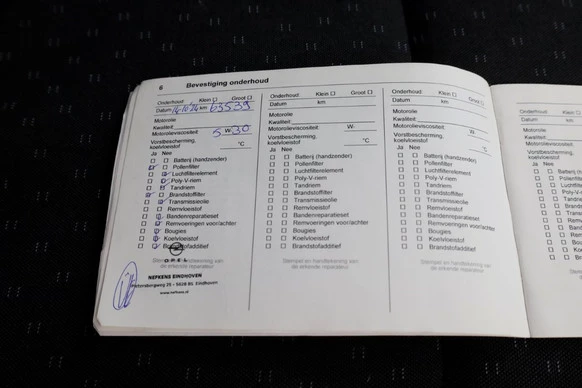 6 Bevestiging onderhoud
Onderhoud: Klein Groot
Datum 14/10/24 km 65539
Motorolie
Kwaliteit
Motorolieviscositeit 5 W- 30
Vorstbescherming, koelvloeistof °C
Ja Nee
Batterij (handzender)
Pollenfilter
Luchtfilterelement
Poly-V-riem
Tandriem
Brandstoffilter
Transmissieolie
Remvloeistof
Bandenreparatieset
Remvoeringen voor/achter
Bougies
Koelvloeistof
Brandstofadditief
OPEL
NEFKENS EINDHOVEN
5628 BS Eindhoven
www.nefkens.nl
Onderhoud: Klein Groot
Datum km
Motorolie
Kwaliteit
Motorolieviscositeit: W-
Vorstbescherming,
koelvloeistof °C
Ja Nee
Batterij (handzender)
Pollenfilter
Luchtfilterelement
Poly-V-riem
Tandriem
Brandstoffilter
Transmissieolie
Remvloeistof
Bandenreparatieset
Remvoeringen voor/achter
Bougies
Koelvloeistof
Brandstofadditief
Stempel en handtekening van
de erkende reparateur
Onderhoud: Klein Groot
Datum km
Motorolie
Kwaliteit:
Motorolieviscositeit: W-
Vorstbescherming,
koelvloeistof °C
Ja Nee
Batterij (handzender)
Pollenfilter
Luchtfilterelement
Poly-V-riem
Tandriem
Brandstoffilter
Transmissieolie
Remvloeistof
Bandenreparatieset
Remvoeringen voor/achter
Bougies
Koelvloeistof
Brandstofadditief
Stempel en handtekening van
de erkende reparateur
Onderhoud:
Datum
Motorolie
Kwaliteit:
Motorolieviscositeit
Vorstbescherming,
koelvloeistof
Ja Nee